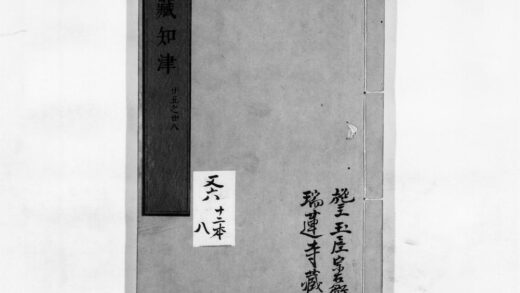 施主玉屋宗
瑞蓮寺藏
藏知津
廿五之廿八
又六
十二本
八